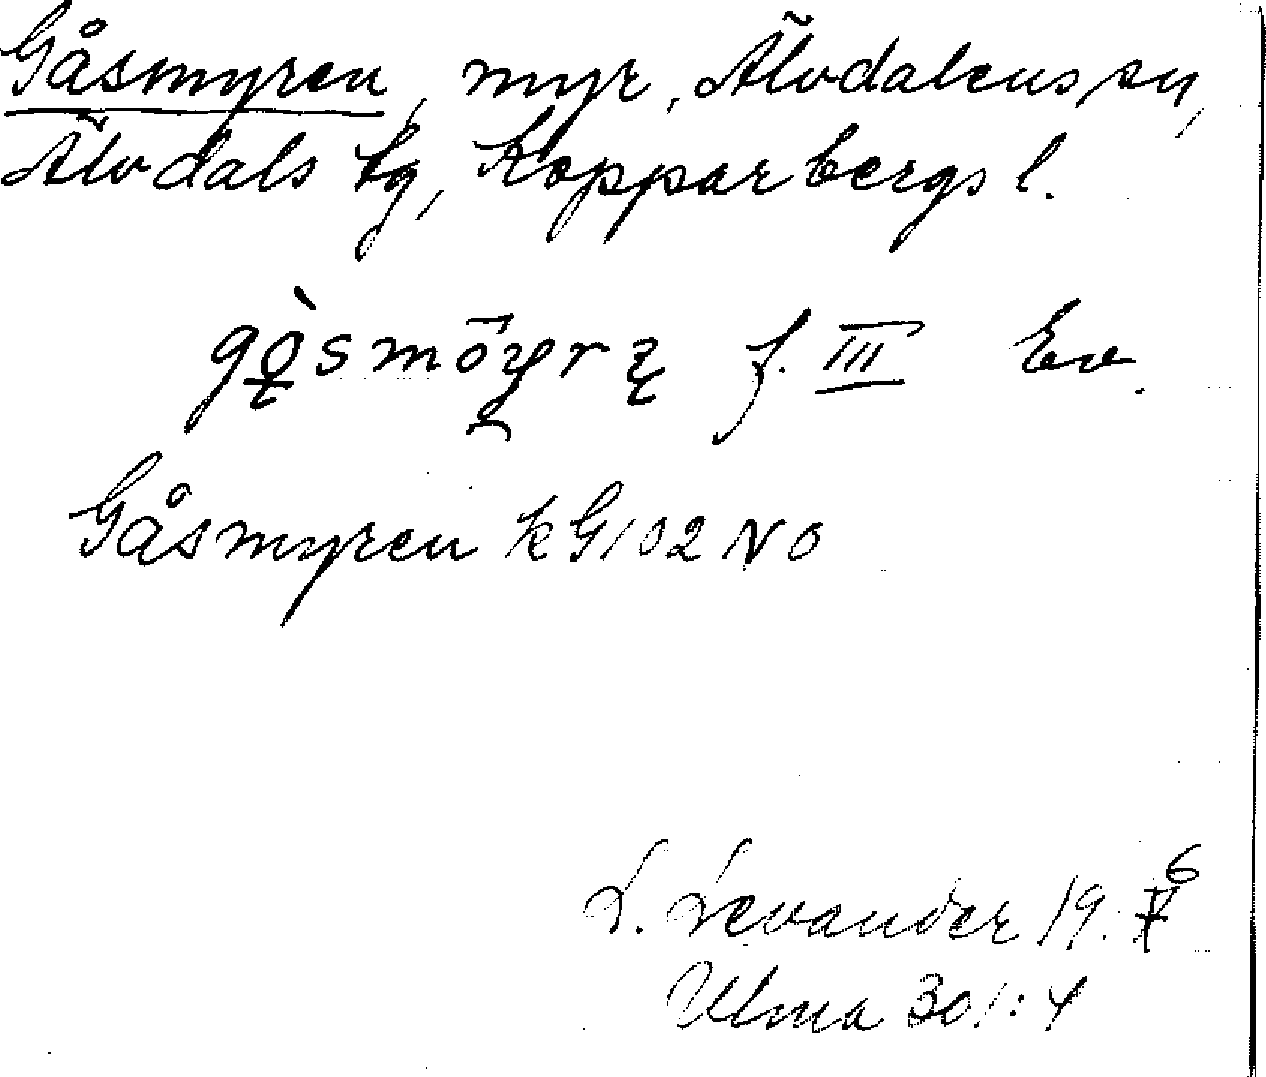 Gåsmyren, myr, Älvdalens sn,
Älvdals tg, Kopparbergs l.
f. III Ev.
Gåsmyren kG 102 NO
L. Levander 19.
Ulma 301:4